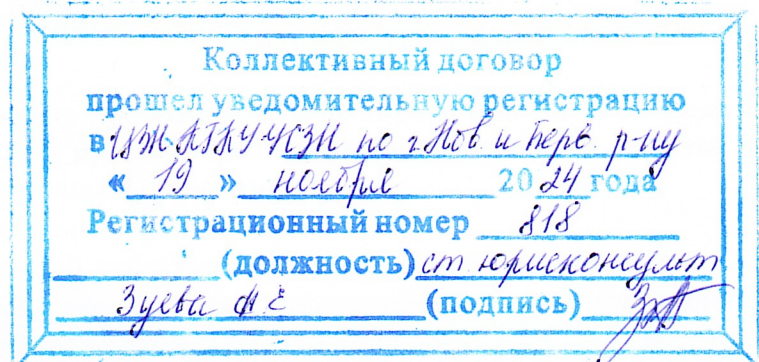 Коллективный договор
прошел уведомительную регистрацию
в ЦЗН КГКУ УСЗН по г. Нов. и Берв. р-ну
« 19 » ноября 2024 года
Регистрационный номер 818
(должность) ст юрисконсульт
Зуева А Е (подпись)